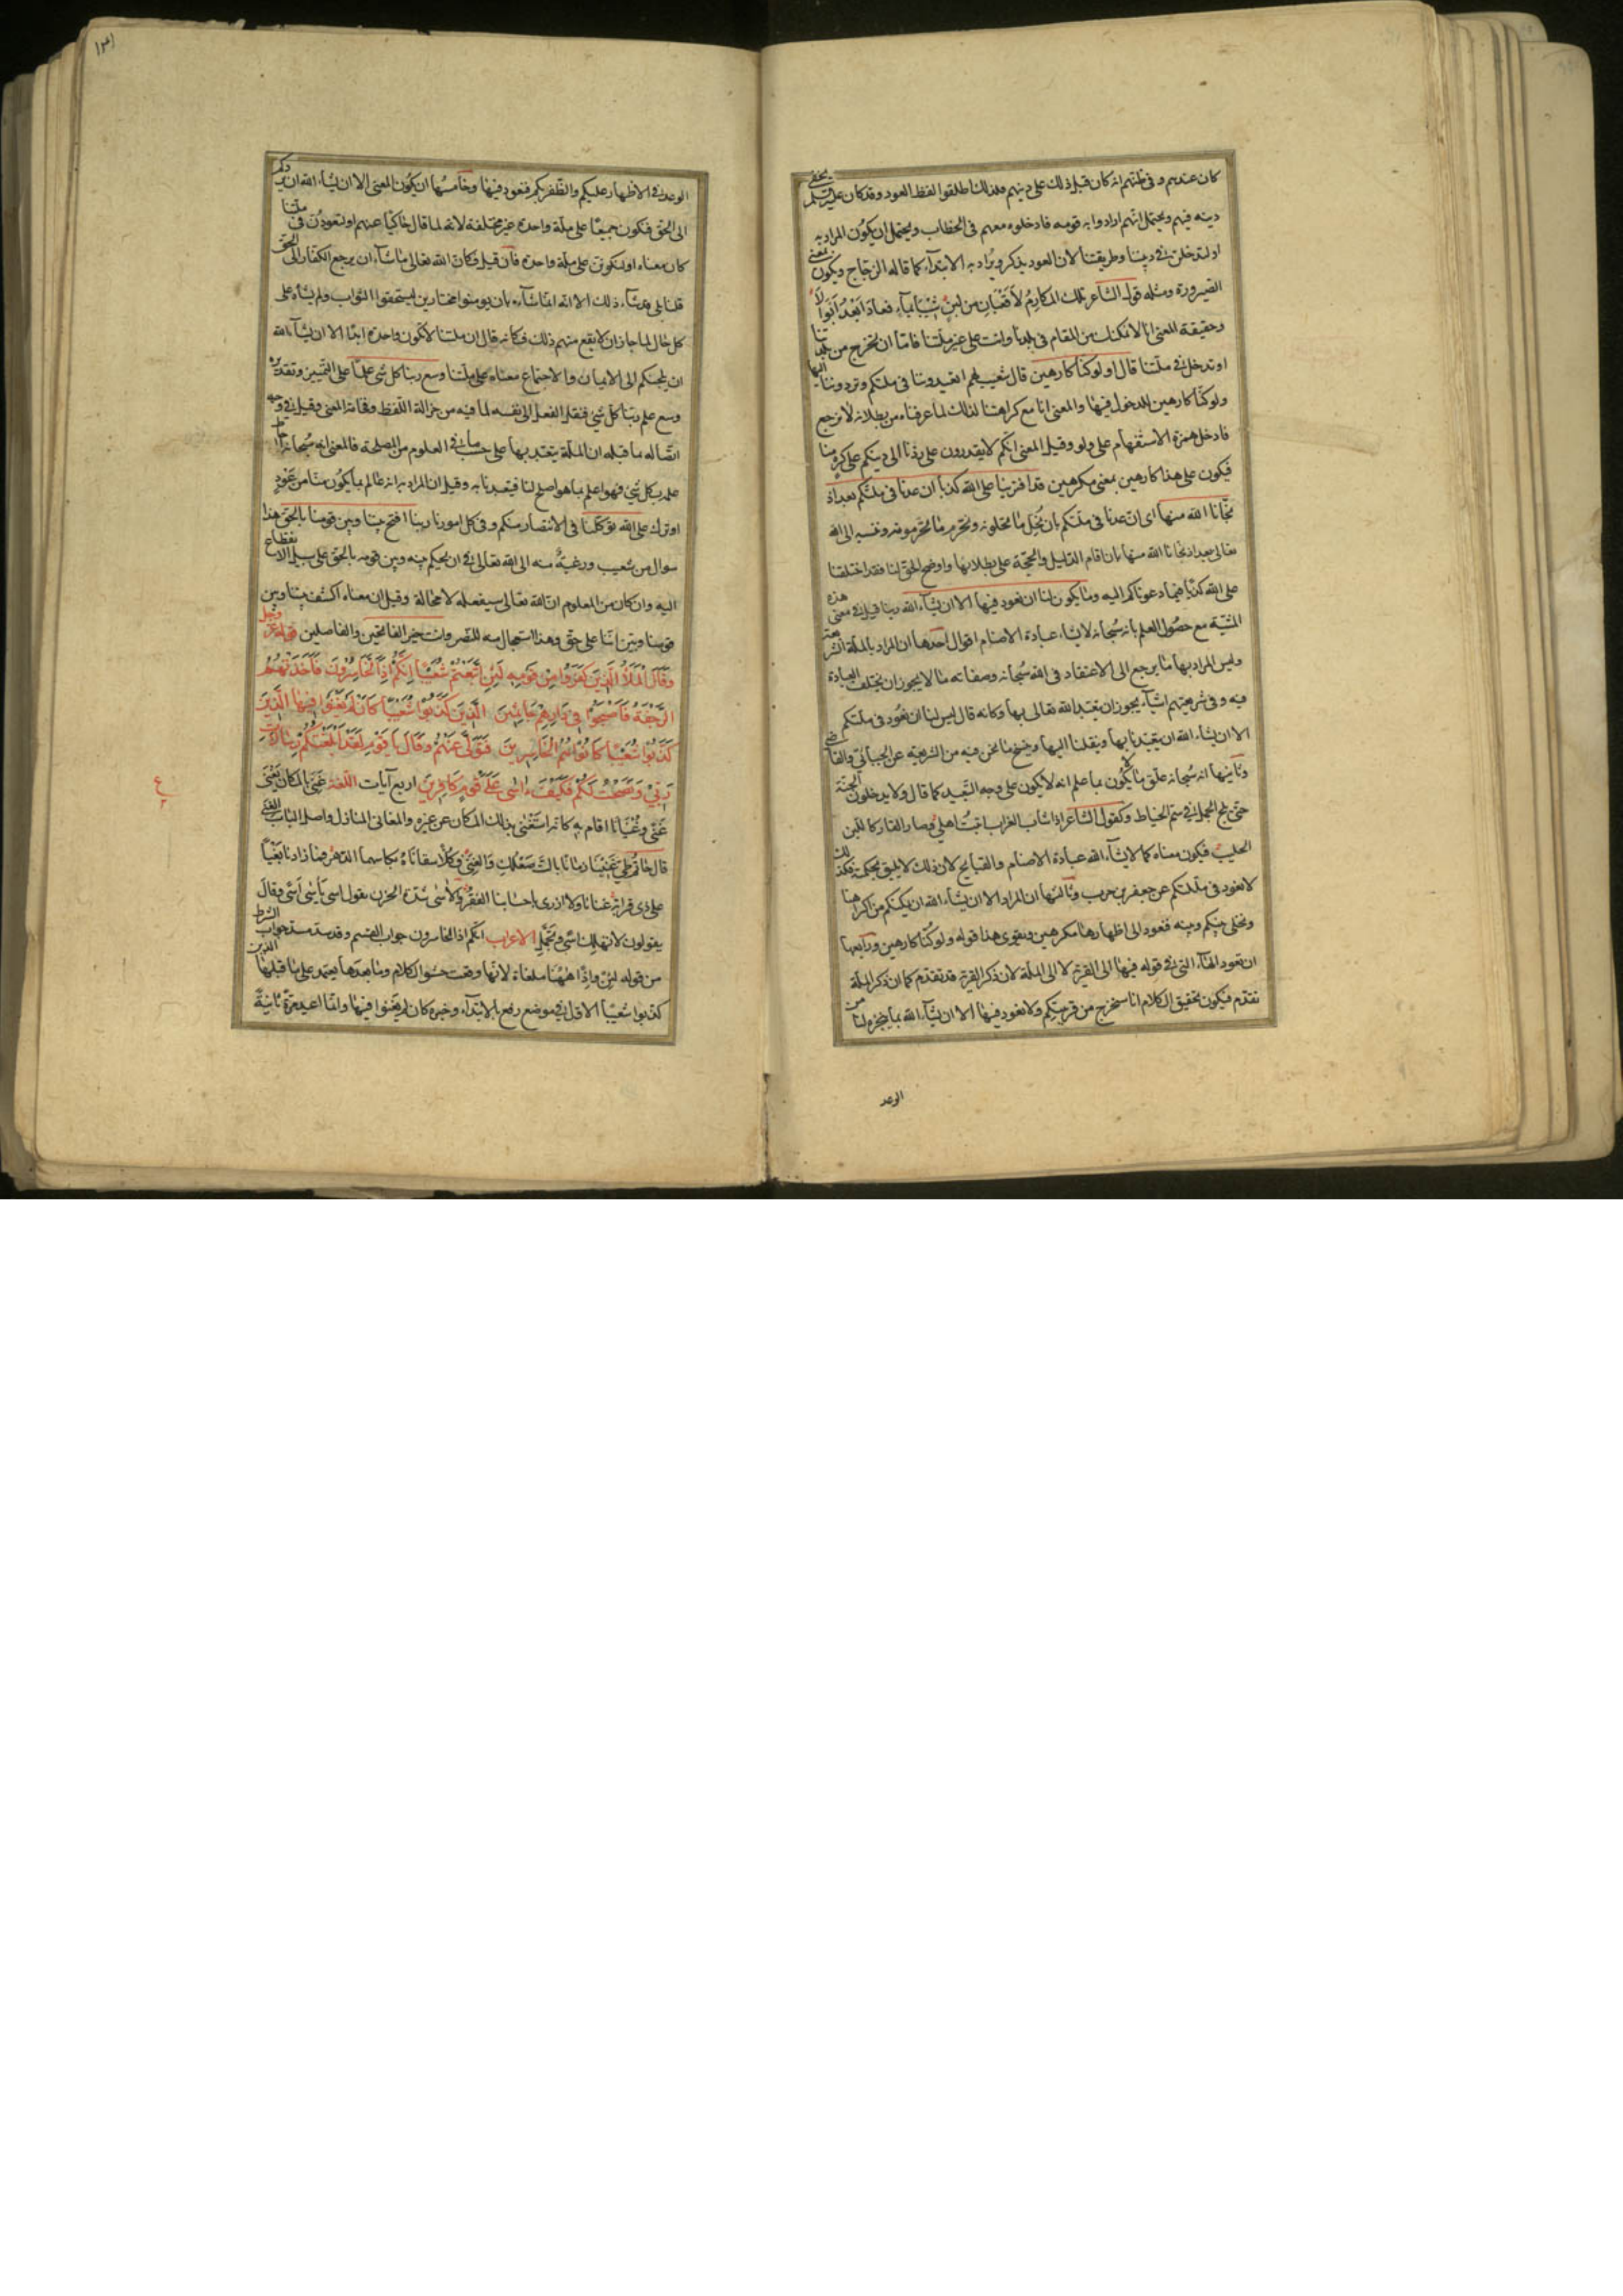 كان عندهم وفي ظنهم انه كان قبل ذلك على دينهم فلذلك اطلقوا لفظ العود وقد كان عليه السلم يخفى
دينه فيهم ويحتمل انهم ارادوا به قومه فادخلوه معهم في الخطاب ويحتمل ان يكون المراد به
او لتدخلن في ديننا وطريقتنا لان العود يذكر ويراد به الابتداء كما قاله الزجاج ويكون بمعنى
الصيرورة ومثله قول الشاعر تلك المكارم لا قعبان من لبن شيبا بماء فعادا بعد ابوالا
وحقيقة المعنى انا لا نمكنك من المقام في بلدنا وانت على غير ملتنا فاما ان تخرج من بلدتنا
او تدخل في ملتنا قال اولو كنا كارهين قال شعيب لهم اتعيدوننا في ملتكم وتردوننا اليها
ولو كنا كارهين للدخول فيها والمعنى انا مع كراهتنا لذلك لما عرفناه من بطلانه لا نرجع
فادخل همزة الاستفهام على ولو وقيل المعنى انكم لا يقدرون على ردنا الى دينكم على كره منا
فيكون على هذا كارهين بمعنى مكرهين قد افترينا على الله كذبا ان عدنا في ملتكم بعد اذ
نجانا الله منها اى ان عدنا في ملتكم بان نحل ما تحلونه ونحرم ما تحرمونه وننسبه الى الله
تعالى بعد اذ نجانا الله منها بان اقام الدليل والحجة على بطلانها واوضح الحق لنا فقد اختلقنا
على الله كذبا فيما دعوناكم اليه وما يكون لنا ان نعود فيها الا ان يشاء الله ربنا قيل في معنى هذه
المشية مع حصول العلم بانه سبحانه لا يشاء عبادة الاصنام اقوال احدها ان المراد بالملة الشريعة
وليس المراد بها ما يرجع الى الاعتقاد في الله سبحانه وصفاته مما لا يجوز ان يختلف العبادة
فيه وفي شريعتهم اشياء يجوز ان يتعبد الله تعالى بها وكانه قال ليس لنا ان نعود في ملتكم
الا ان يشاء الله ان يتعبدنا بها وينقلنا اليها وينسخ ما نحن فيه من الشريعة عن الجبائي والقاضي
وثانيها انه سبحانه علق ما لا يكون بما علم انه لا يكون على وجه التبعيد كما قال ولا يدخلون الجنة
حتى يلج الجمل في سم الخياط وكقول الشاعر اذا شاب الغراب اتيت اهلي وصار القار كاللبن
الحليب فيكون معناه كما لا يشاء الله عبادة الاصنام والقبايح لان ذلك لا يليق بحكمته فكذلك
لا نعود في ملتكم عن جعفر بن حرب وثالثها ان المراد الا ان يشاء الله ان يمكنكم من اكراهنا
ويخلى بينكم وبينه فنعود الى اظهارها مكرهين ويقوى هذا قوله ولو كنا كارهين ورابعها
ان تعود الهاء التي في قوله فيها الى القرية لا الى الملة لان ذكر القرية قد تقدم كما ان ذكر الملة
تقدم فيكون تحقيق الكلام انا سنخرج من قريتكم ولا نعود فيها الا ان يشاء الله بما ينجزه لنا من
الوعد
١٣١
الوعد في الاظهار عليكم والظفر بكم فنعود فيها وخامسها ان يكون المعنى الا ان يشاء الله ان يردكم
الى الحق فنكون جميعا على ملة واحدة غير مختلفة لانه لما قال حاكيا عنهم او لتعودن في ملتنا
كان معناه او لنكونن على ملة واحدة فان قيل وكان الله تعالى ما شاء ان يرجع الكفار الى الحق
قلنا بلى قد شاء ذلك الا انه انما شاءه بان يومنوا مختارين ليستحقوا الثواب ولم يشأه على
كل حال لما جاز ان لا يقع منهم ذلك فكانه قال ان ملتنا لا تكون واحدة ابدا الا ان يشاء الله
ان يلجئكم الى الايمان والاجتماع معناه على ملتنا وسع ربنا كل شى علما على التمييز وتقديره
وسع علم ربنا كل شئ فنقل الفعل الى نفسه لما فيه من جزالة اللفظ وفخامة المعنى وقيل في وجه
اتصاله بما قبله ان الملة يتعبد بها على حسب ما في العلوم من المصلحة فالمعنى انه سبحانه احاط
علمه بكل شئ فهو اعلم بما هو اصلح لنا فيتعبدنا به وقيل ان المراد به انه عالم بما يكون منا من عود
او ترك على الله توكلنا في الانتصار منكم وفي كل امورنا ربنا افتح بيننا وبين قومنا بالحق هذا
سوال من شعيب ورغبة منه الى الله تعالى في ان يحكم بينه وبين قومه بالحق على سبيل الانقطاع
اليه وان كان من المعلوم ان الله تعالى سيفعله لا محالة وقيل ان معناه اكشف بيننا وبين
قومنا وبين اننا على حق وهذا استعجال منه للنصر وانت خير الفاتحين والفاصلين قوله عز وجل
وقال الملأ الذين كفروا من قومه لئن اتبعتم شعيبا انكم اذا لخاسرون فاخذتهم
الرجفة فاصبحوا في دارهم جاثمين الذين كذبوا شعيبا كان لم يغنوا فيها الذين
كذبوا شعيبا كانوا هم الخاسرين فتولى عنهم وقال يا قوم لقد ابلغتكم رسالات
ربي ونصحت لكم فكيف ءاسى على قوم كافرين اربع آيات اللغة غنى بالمكان يغنى
غنى وغنيانا اقام به كانه استغنى بذلك المكان عن غيره والمغانى المنازل واصل الباب الغنى
قال حاتم طي غنينا زمانا بالتصعلك والغنى وكلا سقاناه بكاسهما الدهر فما زادنا بغيا
على ذى قرابة غنانا ولا ازرى باحسابنا الفقر والاسى شدة الحزن يقول اسى يأسى اسى وقال
يقولون لا تهلك اسى وتجمل الاعراب انكم اذا لخاسرون جواب القسم وقد سد مسد جواب الشرط
من قوله لئن واذا ههنا ملغاة لانها وقعت حشو الكلام وما بعدها يعتمد على ما قبلها الذين
كذبوا شعيبا الاول في موضع رفع بالابتداء وخبره كان لم يغنوا فيها وانما اعيد مرة ثانية
ع